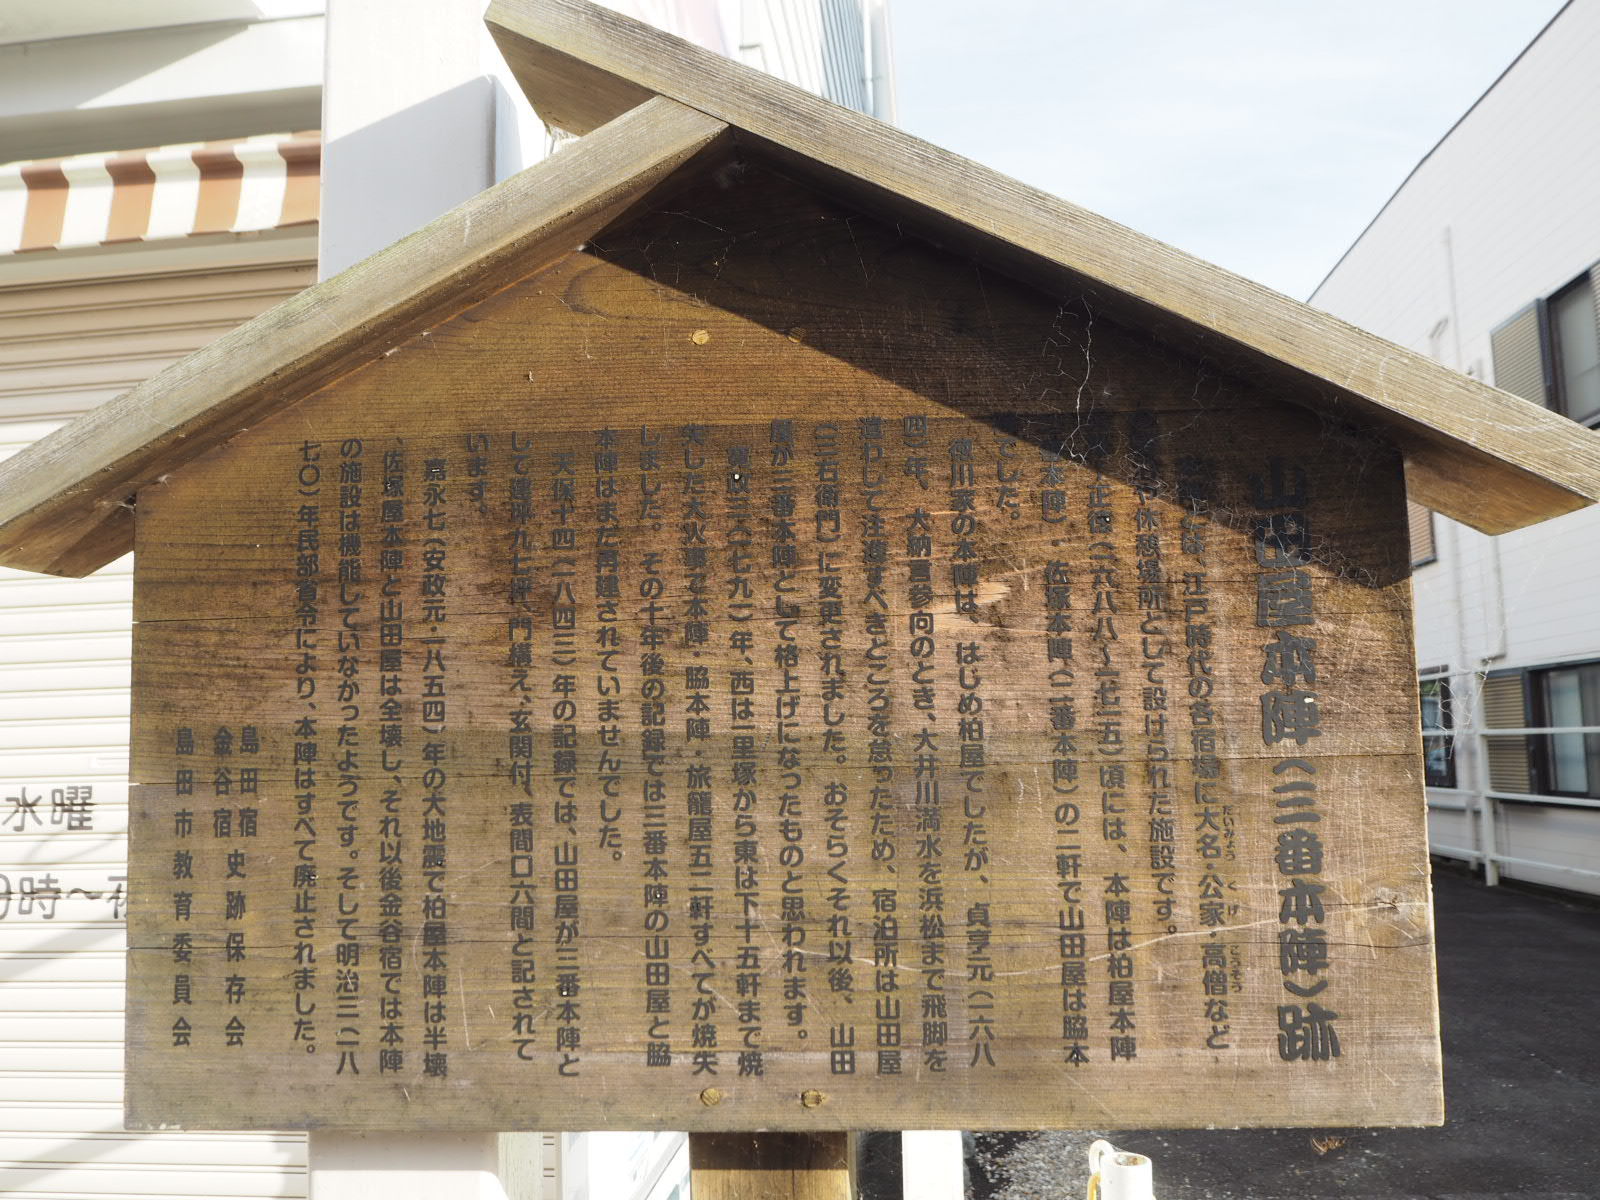 山田屋本陣(三番本陣)跡
は、江戸時代の各宿場に大名・公家・高僧など
だいみょう
くげ
こうそう
や休憩場所として設けられた施設です。
正徳(一六八八～一七一五)頃には、本陣は柏屋本陣
本陣)・佐塚本陣(二番本陣)の二軒で山田屋は脇本
でした。
徳川家の本陣は、はじめ柏屋でしたが、貞享元(一六八
四)年、大納言参向のとき、大井川満水を浜松まで飛脚を
遣わして注進すべきところを怠ったため、宿泊所は山田屋
(三右衛門)に変更されました。おそらくそれ以後、山田
屋が三番本陣として格上げになったものと思われます。
寛政三(一七九一)年、西は一里塚から東は下十五軒まで焼
失した大火事で本陣・脇本陣・旅籠屋五二軒すべてが焼失
しました。その十年後の記録では三番本陣の山田屋と脇
本陣はまだ再建されていませんでした。
天保十四(一八四三)年の記録では、山田屋が三番本陣と
して建坪九七坪、門構え、玄関付、表間口六間と記されて
います。
嘉永七(安政元一八五四)年の大地震で柏屋本陣は半壊
、佐塚屋本陣と山田屋は全壊し、それ以後金谷宿では本陣
の施設は機能していなかったようです。そして明治三(一八
七〇)年民部省令により、本陣はすべて廃止されました。
島田宿
金谷宿 史跡保存会
島田市教育委員会
水曜
9時～